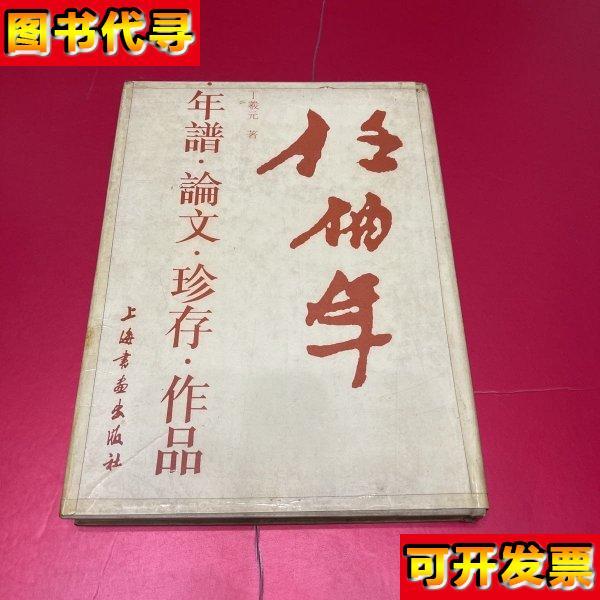 图书代寻
任伯年
丁羲元 著
·年譜·論文·珍存·作品
上海书画出版社
可开发票